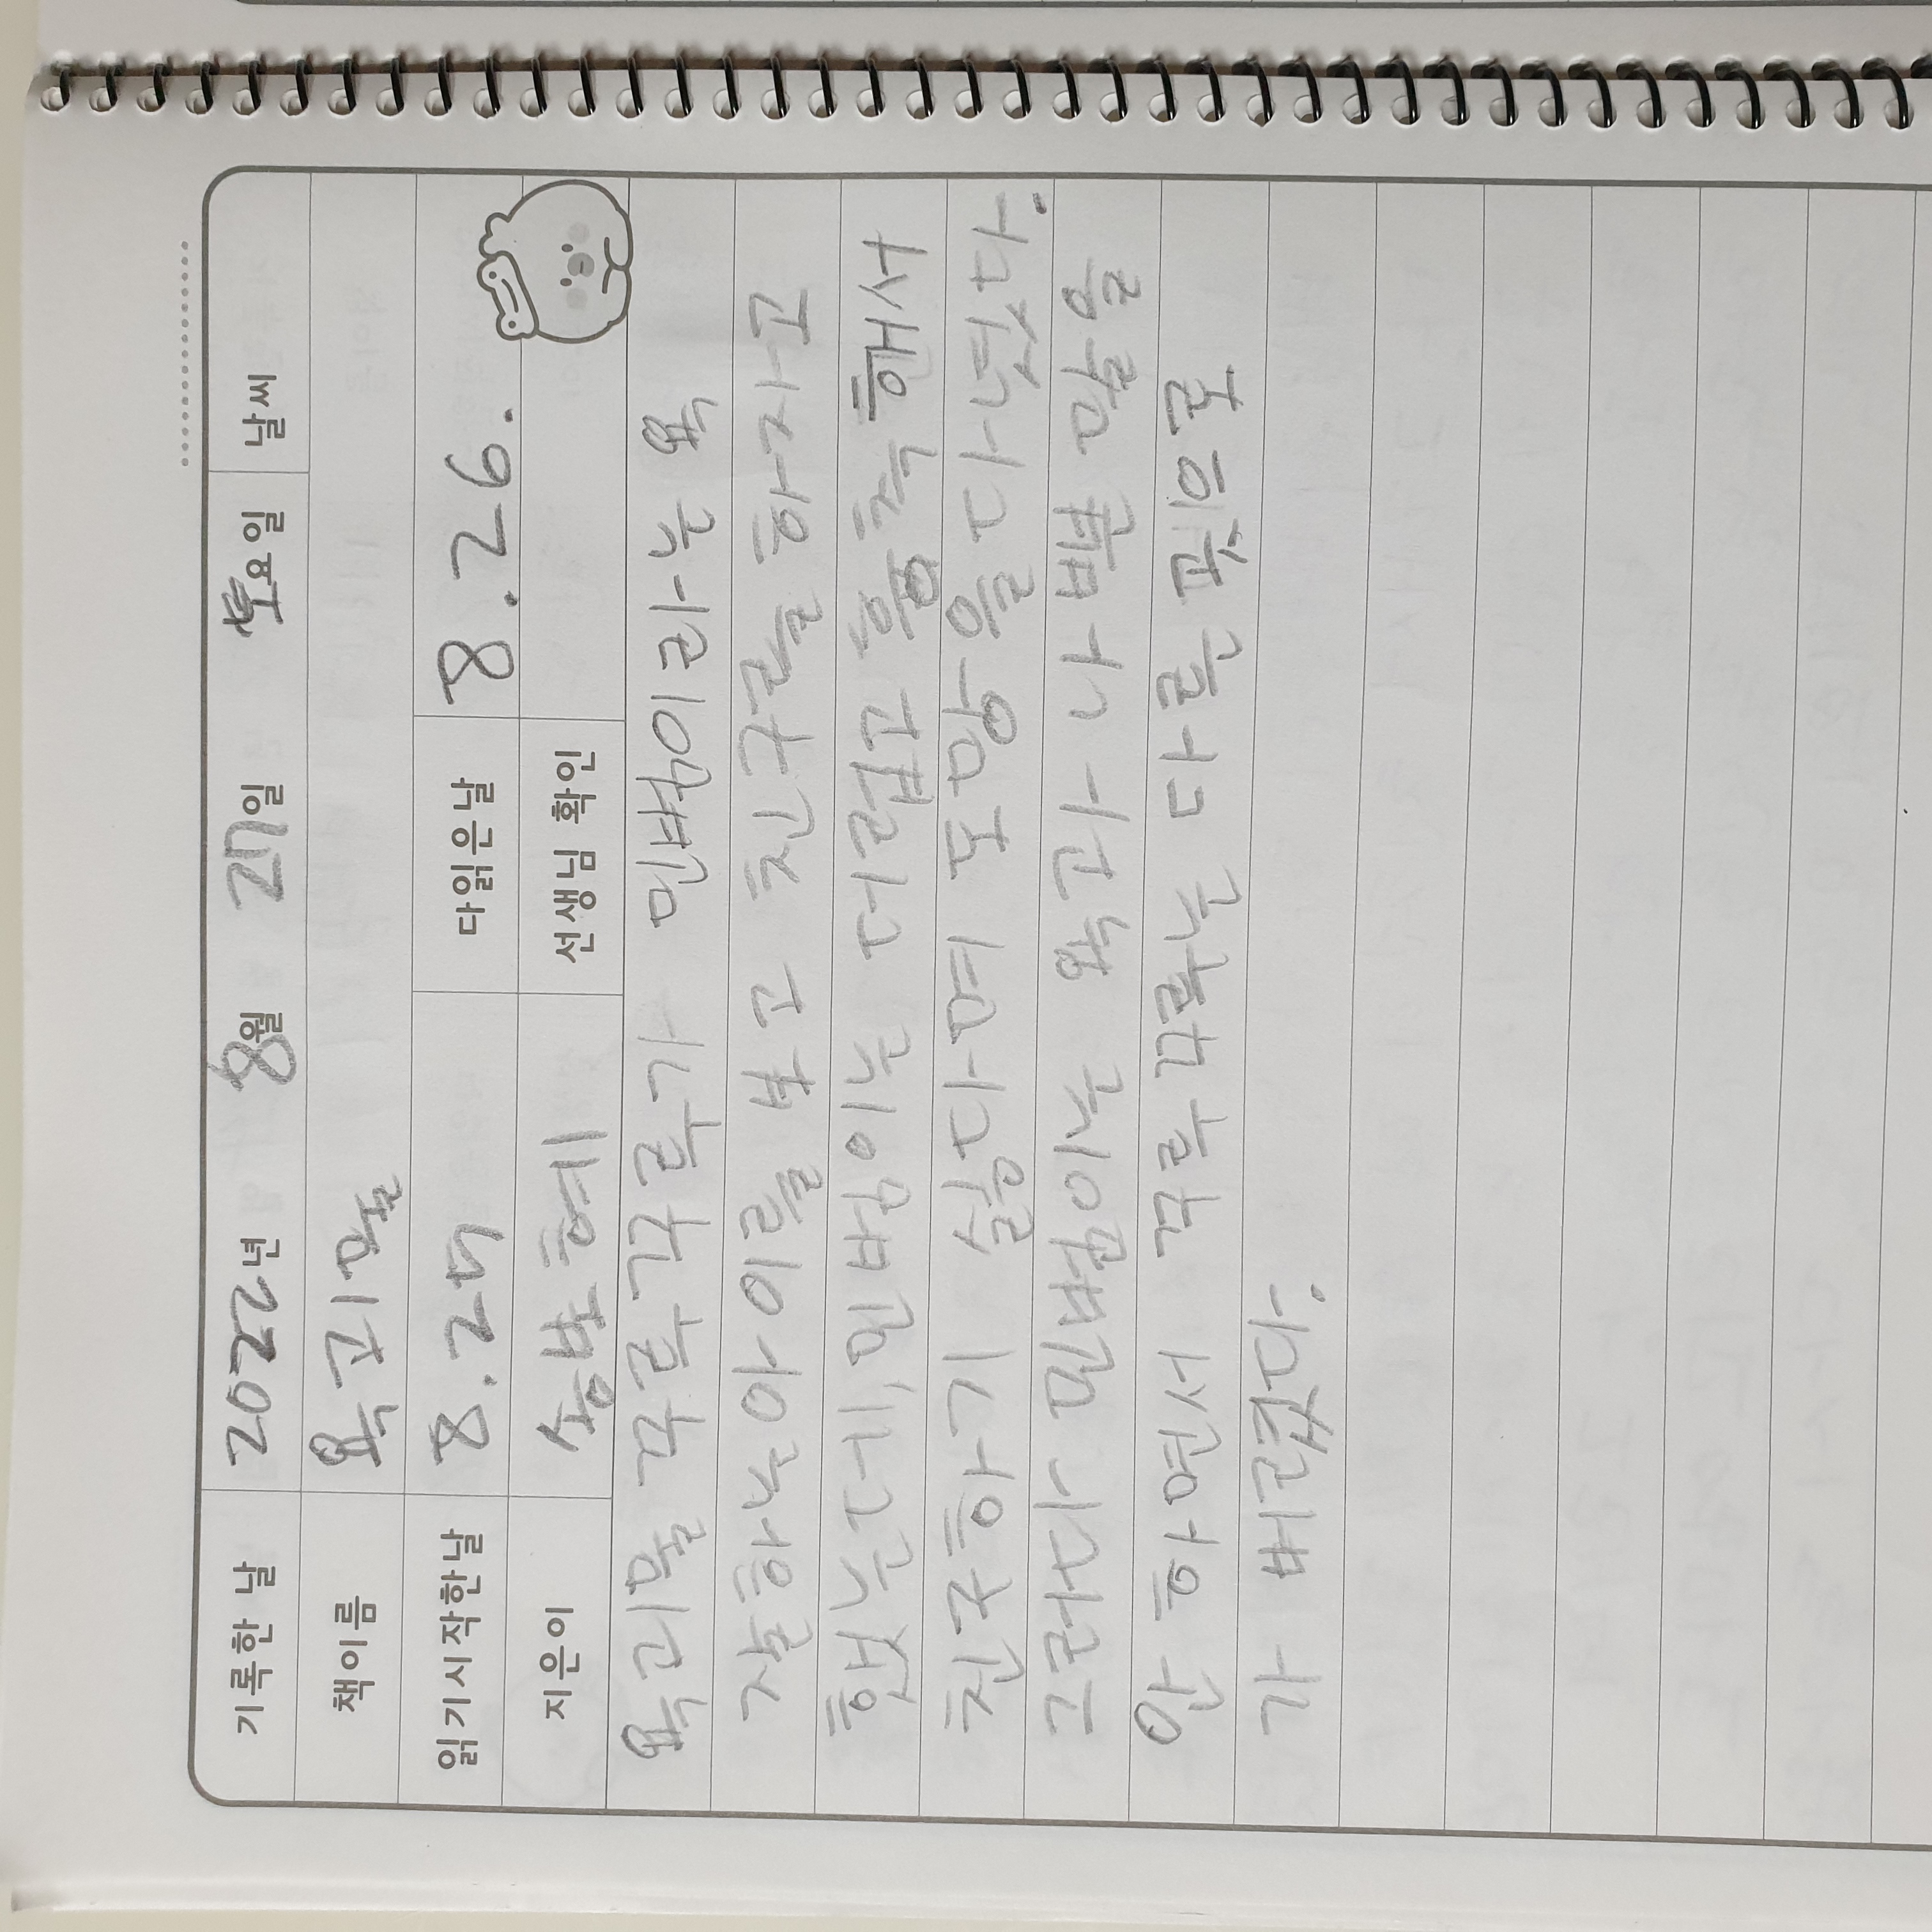 기록한 날 2022년 8월 27일 토요일 날씨
책이름 욕괴물
읽기시작한날 8.25 다읽은날 8.26.
지은이 송보혜 선생님 확인
욕괴물 꾸루꾸루가 민범이라는 욕
잘하는아이를 보고 친구를 하자고
했는데, 민범이는 더럽고 흉측해서
친구하기 싫다며 도망을 다녔다.
그러다 민범이는 욕과 나쁜 말을
안 하면서 꾸루꾸루는 다른 곳으로
가 버렸다.